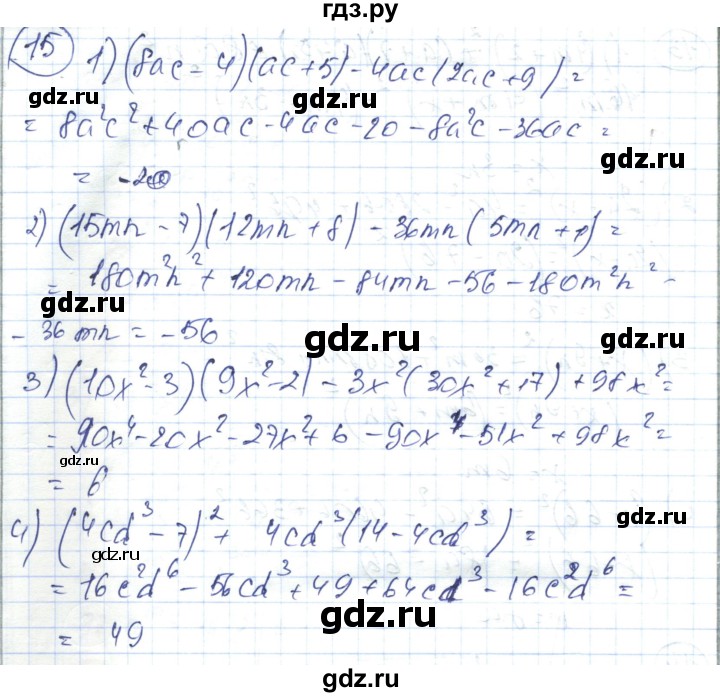 гдз.ру
15 1) (8ac - 4)(ac + 5) - 4ac(2ac + 9) =
= 8a²c² + 40ac - 4ac - 20 - 8a²c - 36ac =
gdz.ru gdz.ru
= -20
2) (15mn - 7)(12mn + 8) - 36mn(5mn + 1) =
gdz.ru
= 180m²n² + 120mn - 84mn - 56 - 180m²n² -
gdz.ru gdz.ru
- 36mn = -56
gdz.ru
3) (10x² - 3)(9x² - 2) - 3x²(30x² + 17) + 98x² =
= 90x⁴ - 20x² - 27x² + 6 - 90x⁴ - 51x² + 98x² =
gdz.ru gdz.ru
= 6
4) (4cd³ - 7)² + 4cd³(14 - 4cd³) =
gdz.ru gdz.ru
= 16c²d⁶ - 56cd³ + 49 + 64cd³ - 16c²d⁶ =
gdz.ru
= 49
gdz.ru gdz.ru